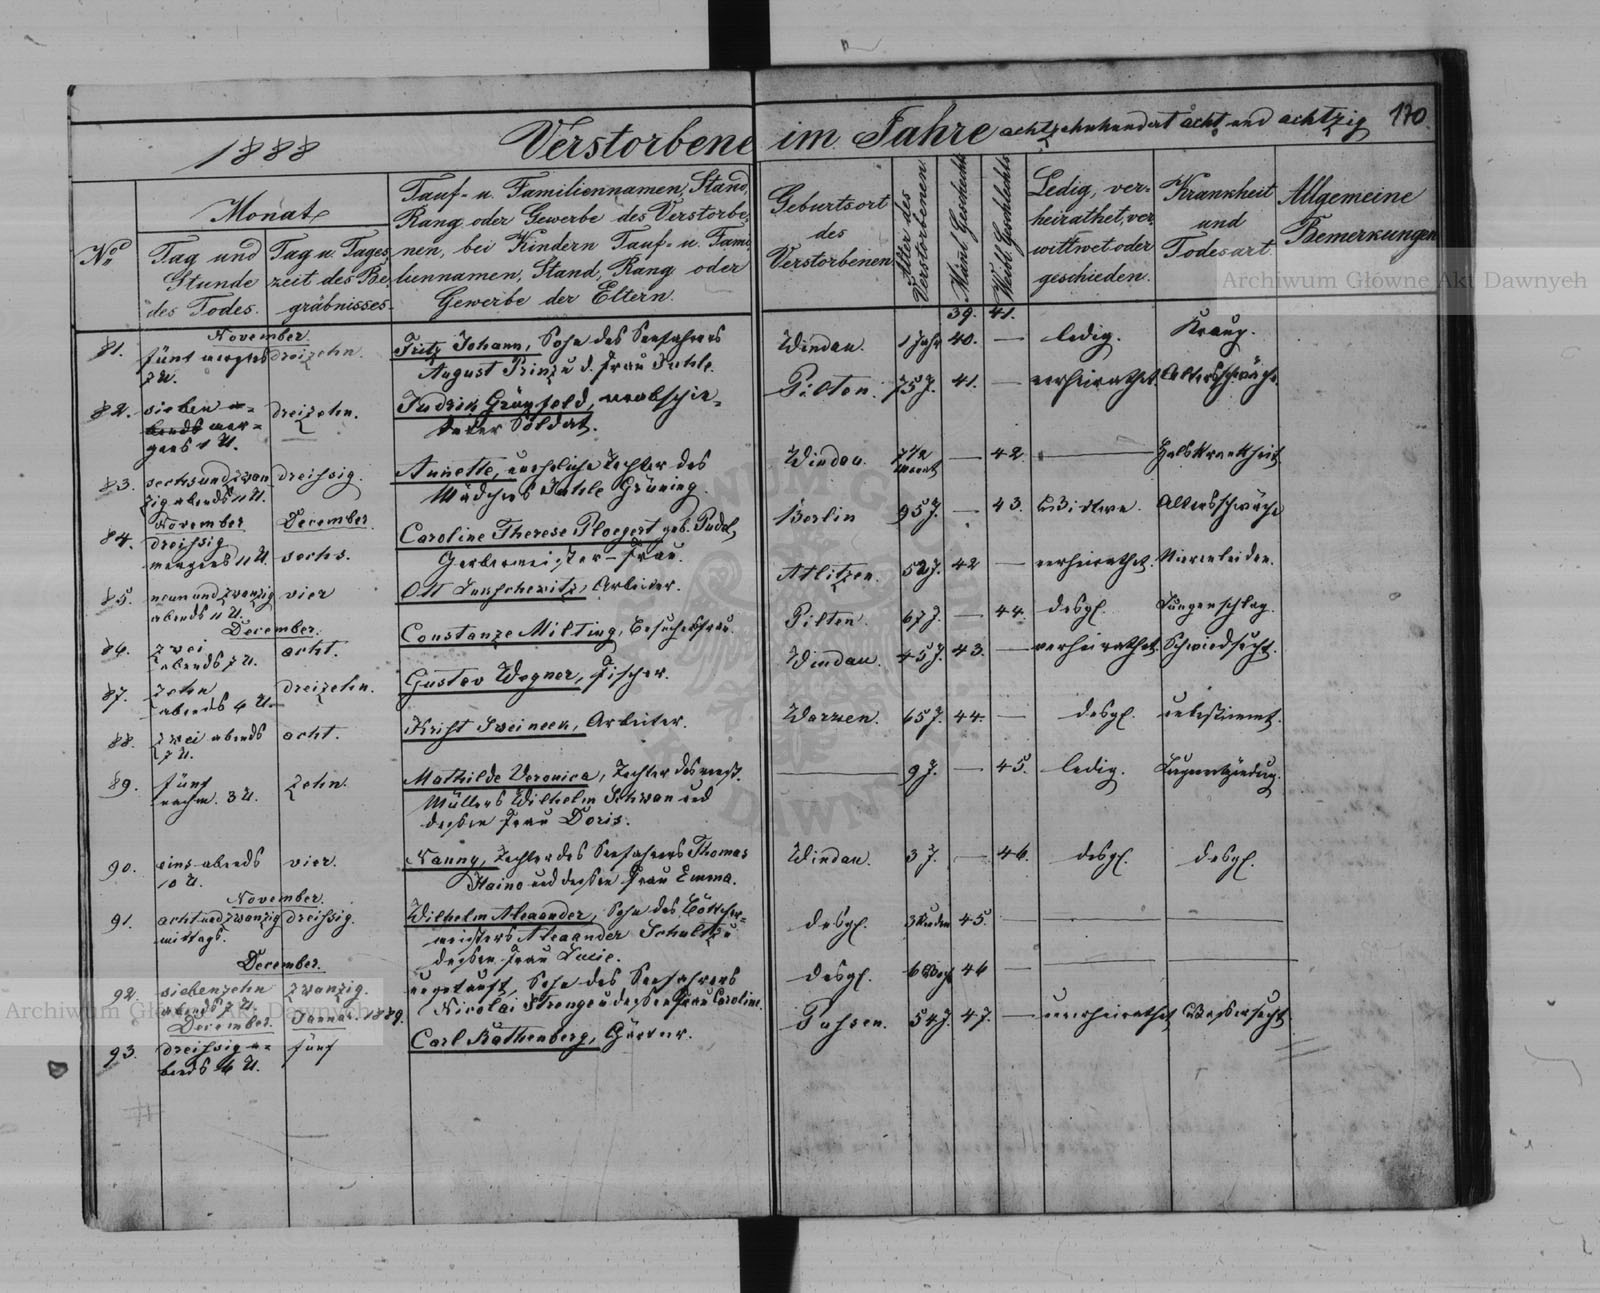 1888
Verstorbene im Jahre achtzehnhundert acht und achtzig
170.
No
Monat
Tag und Stunde des Todes.
Tag u. Tageszeit des Begräbnisses.
Tauf- u. Familiennamen, Stand,
Rang oder Gewerbe des Verstorbe-
nen, bei Kindern Tauf- u. Fami-
liennamen, Stand, Rang oder
Gewerbe der Eltern.
Geburtsort
des
Verstorbenen
Alter des Verstorbenen
Männl. Geschlechts
Weibl. Geschlechts
Ledig, ver-
heirathet, ver-
wittwet oder
geschieden.
Krankheit
und
Todesart.
Allgemeine
Bemerkungen
39. 41.
November
81. fünf morgens 7 U. dreizehn. Fritz Johann, Sohn des Seefahrers
August Prinz u. d. Frau Juhle.
Windau. 1 Jahr 40. — ledig. Kramp.
82. sieben a-
bends mor-
gens 1 U. dreizehn. Indrik Grünfeld, verabschie-
deter Soldat.
Pilten. 75 J. 41. — verheirathet. Altersschwäche
83. sechsundzwan-
zig abends 11 U. dreissig. Annette, uneheliche Tochter des
Mädchens Juhle Grüning.
Windau. 7 1/2 Monat — 42. — Halskrankheit
November December.
84. dreissig
morgens 11 U. sechs. Caroline Therese Ploegert geb. Pudel,
Gerbermeister-Frau.
Berlin 95 J. — 43. Wittwe. Altersschwäche
85. neun und zwanzig
abends 11 U. vier Ott, Arbeiter.
Atlitzen. 52 J. 42 — verheirathet. Nierenleiden.
December.
86. zwei
abends 7 U. acht. Constanze Milting,
Pilten. 67 J. — 44. desgl. Lungenschlag.
87. zehn
abends 4 U. dreizehn. Gustav Wegner, Fischer.
Windau. 45 J. 43. — verheirathet. Schwindsucht.
88. zwei abends
7 U. acht. Krist Sweineek, Arbeiter.
Warwen. 65 J. 44. — desgl. unbestimmt.
89. fünf
nachm. 3 U. Zehn. Mathilde Veronica, Tochter des
Müllers Wilhelm Schwan und
dessen Frau Doris.
— 9 J. — 45. ledig. Lungenentzündung.
90. eins abends
10 U. vier. Nanny, Tochter des Seefahrers Thomas
Kaino und dessen Frau Emma.
Windau. 3 J. — 46. desgl. desgl.
November.
91. acht und zwanzig
mittags. dreissig. Wilhelm Alexander, Sohn des Böttcher-
meisters Alexander Schultz u
dessen Frau Lucie.
desgl. 3 Stunden 45. —
December.
92. siebenzehn
abends 7 U. zwanzig. ungetauft, Sohn des Seefahrers
Nicolai Strenge u dessen Frau Caroline.
desgl. 6 Woch. 46 —
December. Januar. 1889.
93. dreissig a-
bends 4 U. fünf Carl Kathenberg, Gärtner.
Pussen. 54 J. 47. — unverheirathet Wassersucht
Archiwum Główne Akt Dawnych
Archiwum Główne Akt Dawnych